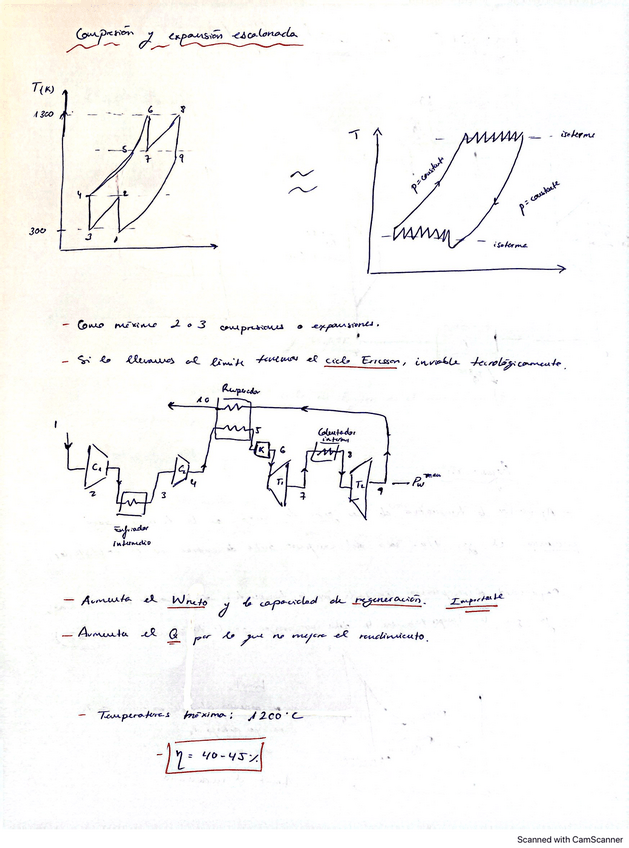 Compresión y expansión escalonada
T(K)
1300
6
8
5
7
9
4
2
300
3
1
≈
T
isoterma
p=constante
p=constante
isoterma
- Como máximo 2 o 3 compresiones o expansiones.
- Si lo llevamos al límite tenemos el ciclo Ericsson, inviable tecnológicamente.
10
5
1
C1
2
Enfriador
intermedio
3
C2
4
K
6
T1
7
Calentador
interno
8
T2
9
- Aumenta el Wneto y la capacidad de regeneración. Importante
- Aumenta el Q por lo que no mejora el rendimiento.
- Temperaturas máxima: 1200°C
- η = 40-45%
Scanned with CamScanner